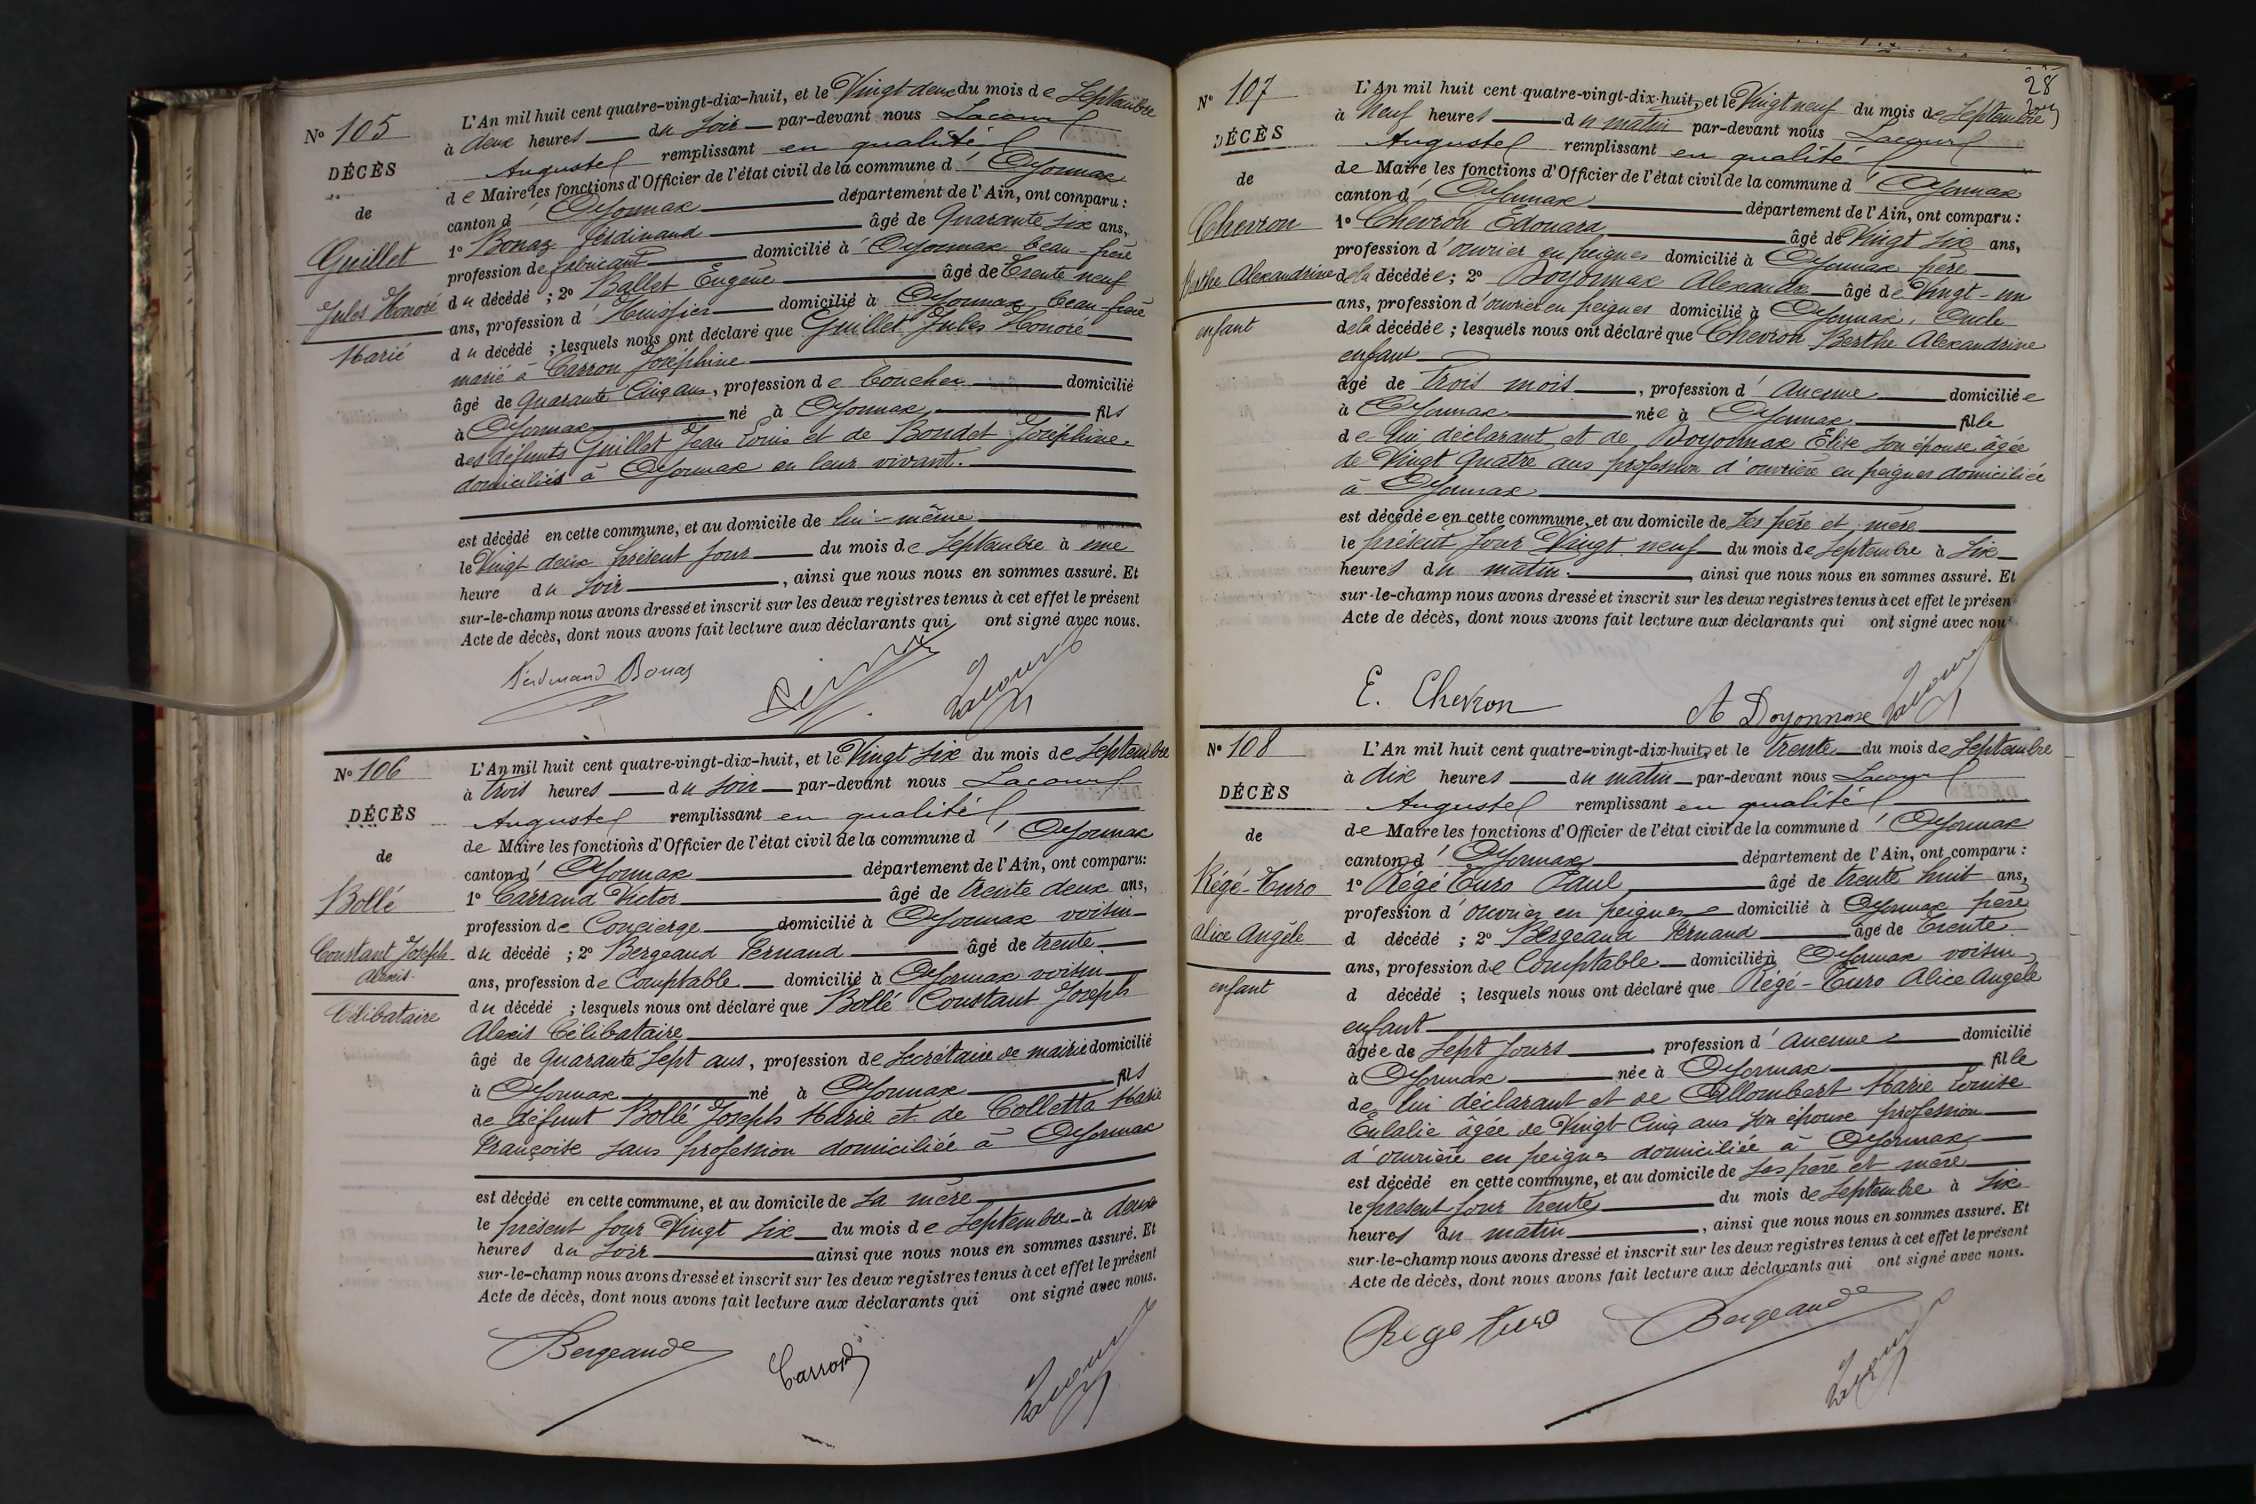 N° 105
DÉCÈS
de
Guillet
Jules Honoré
Marié
L'An mil huit cent quatre-vingt-dix-huit, et le Vingt deux du mois de Septembre
à deux heures du soir par-devant nous Lacour
Auguste remplissant en qualité
de Maire les fonctions d'Officier de l'état civil de la commune d'Oyonnax
canton d'Oyonnax département de l'Ain, ont comparu :
1° Bonaz Ferdinand âgé de Quarante six ans,
profession de fabricant domicilié à Oyonnax beau-frère
du décédé ; 2° Ballet Eugène âgé de Trente neuf
ans, profession d'Huissier domicilié à Oyonnax, beau-frère
du décédé ; lesquels nous ont déclaré que Guillet Jules Honoré
marié à Carron Joséphine
âgé de Quarante Cinq ans, profession de boucher domicilié
à Oyonnax né à Oyonnax fils
des défunts Guillet Jean Louis et de Bondet Joséphine
domiciliés à Oyonnax en leur vivant.
est décédé en cette commune, et au domicile de lui-même
le Vingt deux présent jour du mois de Septembre à une
heure du soir, ainsi que nous nous en sommes assuré. Et
sur-le-champ nous avons dressé et inscrit sur les deux registres tenus à cet effet le présent
Acte de décès, dont nous avons fait lecture aux déclarants qui ont signé avec nous.
Ferdinand Bonaz
Lacour
N° 106
DÉCÈS
de
Bollé
Constant Joseph
Alexis
Célibataire
L'An mil huit cent quatre-vingt-dix-huit, et le Vingt six du mois de Septembre
à trois heures du soir par-devant nous Lacour
Auguste remplissant en qualité
de Maire les fonctions d'Officier de l'état civil de la commune d'Oyonnax
canton d'Oyonnax département de l'Ain, ont comparu :
1° Carrand Victor âgé de trente deux ans,
profession de Concierge domicilié à Oyonnax voisin
du décédé ; 2° Bergeaud Fernand âgé de trente
ans, profession de Comptable domicilié à Oyonnax voisin
du décédé ; lesquels nous ont déclaré que Bollé Constant Joseph
Alexis Célibataire
âgé de quarante sept ans, profession de Secrétaire de mairie domicilié
à Oyonnax né à Oyonnax fils
de défunt Bollé Joseph Marie et de Colletta Marie
Françoise sans profession domiciliée à Oyonnax
est décédé en cette commune, et au domicile de sa mère
le présent jour Vingt six du mois de Septembre à deux
heures du soir ainsi que nous nous en sommes assuré. Et
sur-le-champ nous avons dressé et inscrit sur les deux registres tenus à cet effet le présent
Acte de décès, dont nous avons fait lecture aux déclarants qui ont signé avec nous.
Bergeaud Carrand Lacour
28
N° 107
DÉCÈS
de
Chevron
Berthe Alexandrine
enfant
L'An mil huit cent quatre-vingt-dix-huit, et le Vingt neuf du mois de Septembre
à Neuf heures du matin par-devant nous Lacour
Auguste remplissant en qualité
de Maire les fonctions d'Officier de l'état civil de la commune d'Oyonnax
canton d'Oyonnax département de l'Ain, ont comparu :
1° Chevron Edouard âgé de Vingt six ans,
profession d'ouvrier en peignes domicilié à Oyonnax père
de la décédée ; 2° Doyonnax Alexandre âgé de Vingt-un
ans, profession d'ouvrier en peignes domicilié à Oyonnax, Oncle
de la décédée ; lesquels nous ont déclaré que Chevron Berthe Alexandrine
enfant
âgé de Trois mois, profession d'aucune domiciliée
à Oyonnax née à Oyonnax fille
de lui déclarant et de Doyonnax Elise son épouse âgée
de Vingt Quatre ans profession d'ouvrière en peignes domiciliée
à Oyonnax
est décédée en cette commune, et au domicile de ses père et mère
le présent jour Vingt neuf du mois de Septembre à Six
heures du matin, ainsi que nous nous en sommes assuré. Et
sur-le-champ nous avons dressé et inscrit sur les deux registres tenus à cet effet le présen
Acte de décès, dont nous avons fait lecture aux déclarants qui ont signé avec nou
E. Chevron A Doyonnax Lacour
N° 108
DÉCÈS
de
Régé-Turo
Alice Angèle
enfant
L'An mil huit cent quatre-vingt-dix-huit, et le trente du mois de Septembre
à dix heures du matin par-devant nous Lacour
Auguste remplissant en qualité
de Maire les fonctions d'Officier de l'état civil de la commune d'Oyonnax
canton d'Oyonnax département de l'Ain, ont comparu :
1° Régé Turo Paul âgé de trente huit ans,
profession d'ouvrier en peignes domicilié à Oyonnax père
d décédé ; 2° Bergeaud Fernand âgé de Trente
ans, profession de Comptable domicilié à Oyonnax voisin
d décédé ; lesquels nous ont déclaré que Régé-Turo Alice Angèle
enfant
âgée de Sept jours, profession d'aucune domicilié
à Oyonnax née à Oyonnax fille
de lui déclarant et de Allombert Marie Louise
Eulalie âgée de Vingt Cinq ans son épouse profession
d'ouvrière en peignes domiciliée à Oyonnax
est décédé en cette commune, et au domicile de ses père et mère
le présent jour trente du mois de Septembre à Six
heures du matin, ainsi que nous nous en sommes assuré. Et
sur-le-champ nous avons dressé et inscrit sur les deux registres tenus à cet effet le présent
Acte de décès, dont nous avons fait lecture aux déclarants qui ont signé avec nous.
Rege Turo Bergeaud Lacour